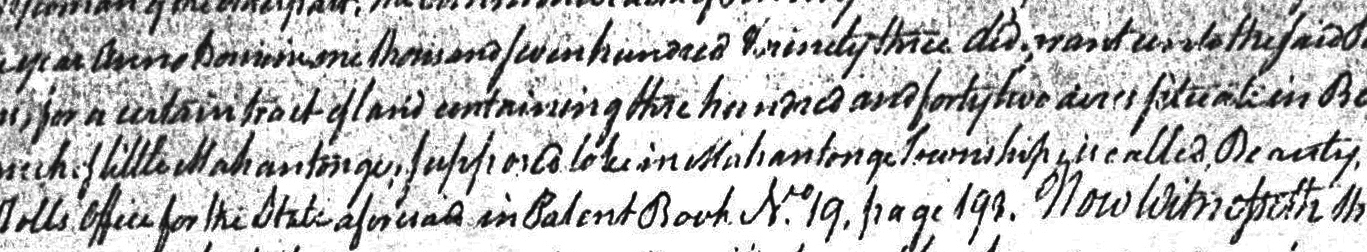 year Anno Domini one thousand seven hundred & ninety three did grant unto the said
for a certain tract of land containing three hundred and forty two acres situate in
of little Mahantongo, supposed to be in Mahantonge Township, is called Beauty,
Rolls Office for the State aforesaid in Patent Book No. 19, page 193. Now Witnesseth